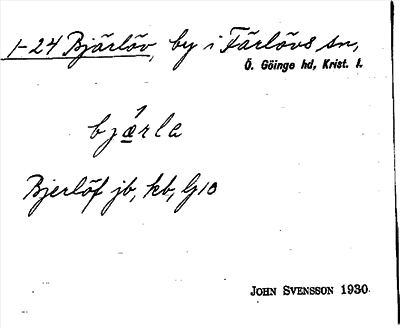 1-24 Bjärlöv, by i Färlövs sn,
Ö. Göinge hd, Krist. l.
bjä̱́rla
Bjerlöf jb, kb, G10
JOHN SVENSSON 1930.